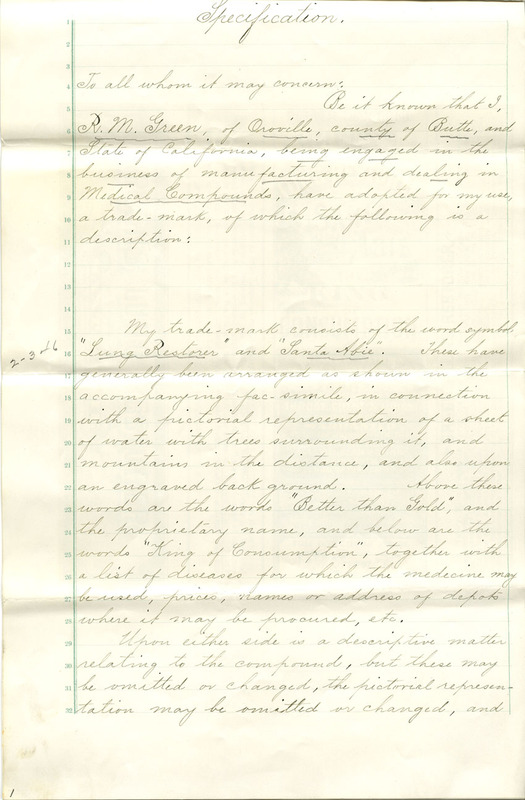 Specification.
To all whom it may concern:
Be it known that I,
R. M. Green, of Oroville, county of Butte, and
State of California, being engaged in the
business of manufacturing and dealing in
Medical Compounds, have adopted for my use,
a trade-mark, of which the following is a
description:
My trade-mark consists of the word symbol
"Lung Restorer" and "Santa Abie". These have
generally been arranged as shown in the
accompanying fac-simile, in connection
with a pictorial representation of a sheet
of water with trees surrounding it, and
mountains in the distance, and also upon
an engraved back ground. Above these
words are the words "Better than Gold", and
the proprietary name, and below are the
words "King of Consumption", together with
a list of diseases for which the medecine may
be used, prices, names or address of depots
where it may be procured, etc.
Upon either side is a descriptive matter
relating to the compound, but these may
be omitted or changed, the pictorial represen-
tation may be omitted or changed, and
1